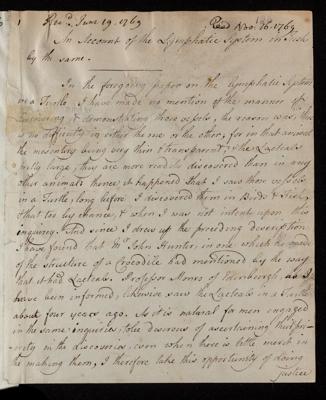 1 Rec'd June 19. 1769 Read Nov. 16. 1769.
An Account of the Lymphatic System in Fish
by the same.
In the foregoing paper on the Lymphatic System
in a Turtle, I have made no mention of the manner of
& demonstrating those vessels, the reason was, there
is no difficulty in either the one or the other; for in that animal
the mesentery being very thin & transparent, & the Lacteals
pretty large, they are more readily discovered than in any
other animal; hence it happened that I saw those vessels
in a Turtle, long before I discovered them in Birds & Fish,
& that too by chance, & when I was not intent upon this
inquiry. And since I drew up the preceding description
I have found that Mr. John Hunter, in one which he made
of the structure of a Crocodile had mentioned by the way
that it had Lacteals. Professor Monro of Edenburgh, as I
have been informed, likewise saw the Lacteals in a Turtle
about four years ago. As it is natural for men engaged
in the same inquiries, to be desirous of ascertaining their pri-
ority in the discoveries, even when there is little merit in
the making them, I therefore take this opportunity of doing
justice